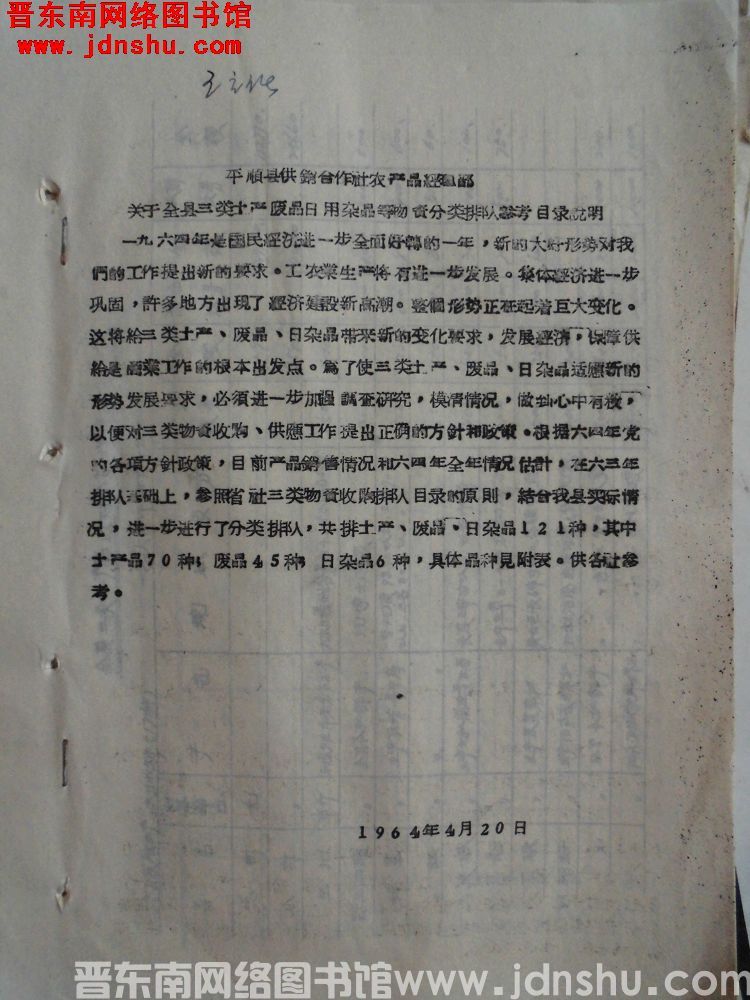 晋东南网络图书馆
www.jdnshu.com
平順县供銷合作社农产品經理部
关于全县三类土产废品日用杂品等物資分类排队参考目录說明
一九六四年是國民經济进一步全面好轉的一年，新的大好形势对我
們的工作提出新的要求。工农業生产将有进一步发展。集体經济进一步
巩固，許多地方出現了經济建設新高潮。整個形势正在起着巨大变化。
这将給三类土产、废品、日杂品带来新的变化要求，发展經濟，保障供
給是商業工作的根本出发点。爲了使三类土产、废品、日杂品适應新的
形势发展要求，必須进一步加强調查研究，模清情况，做到心中有数，
以便对三类物資收购、供應工作提出正确的方針和政策。根据六四年党
的各項方針政策，目前产品銷售情况和六四年全年情况估計，在六三年
排队基础上，参照省社三类物資收购排队目录的原則，結合我县实际情
况，进一步进行了分类排队，共排土产、废品、日杂品121种，其中
土产品70种；废品45种；日杂品6种，具体品种見附表。供各社参
考。
1964年4月20日
晋东南网络图书馆www.jdnshu.com